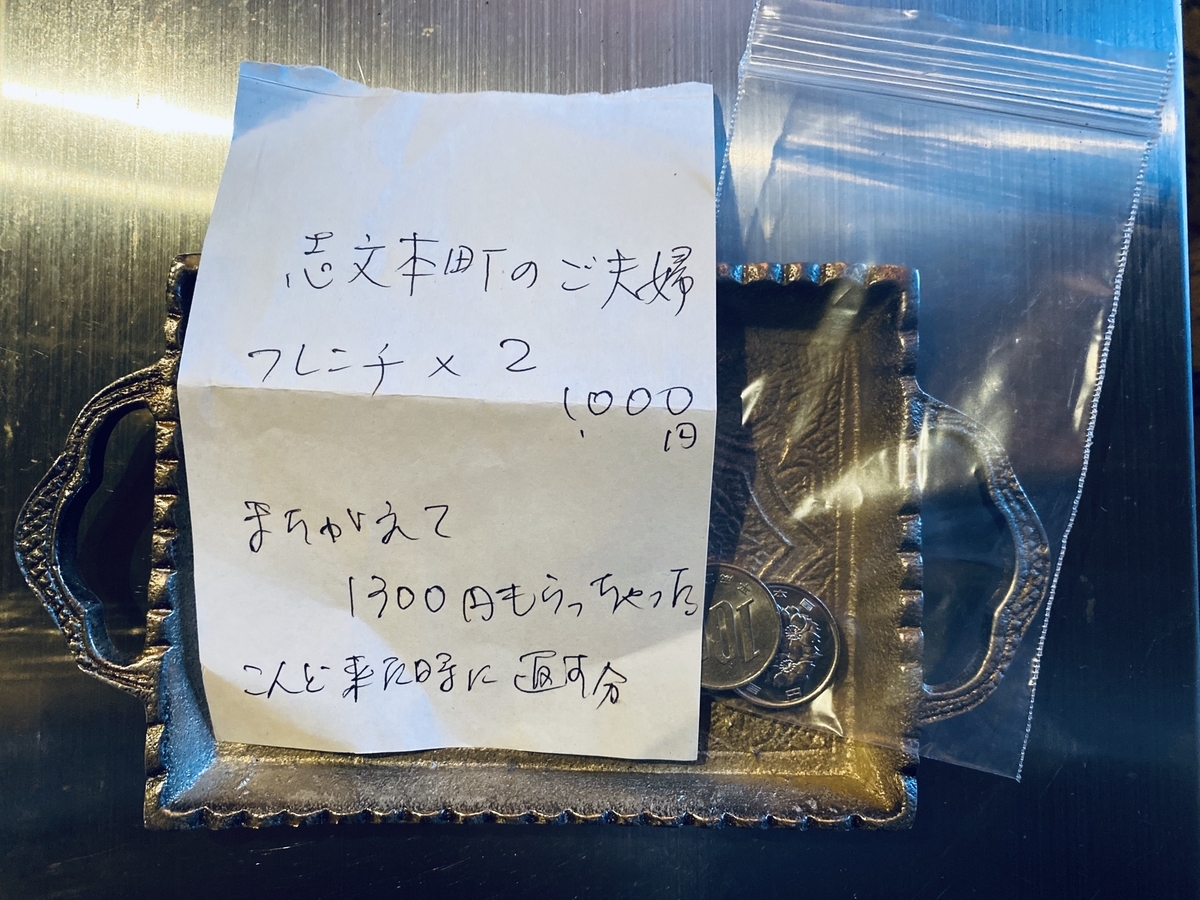 志文本町のご夫婦
フレンチ × 2
1,000
円
まちがえて
1300円もらっちゃった
こんど来た時に返す分
100
日本国